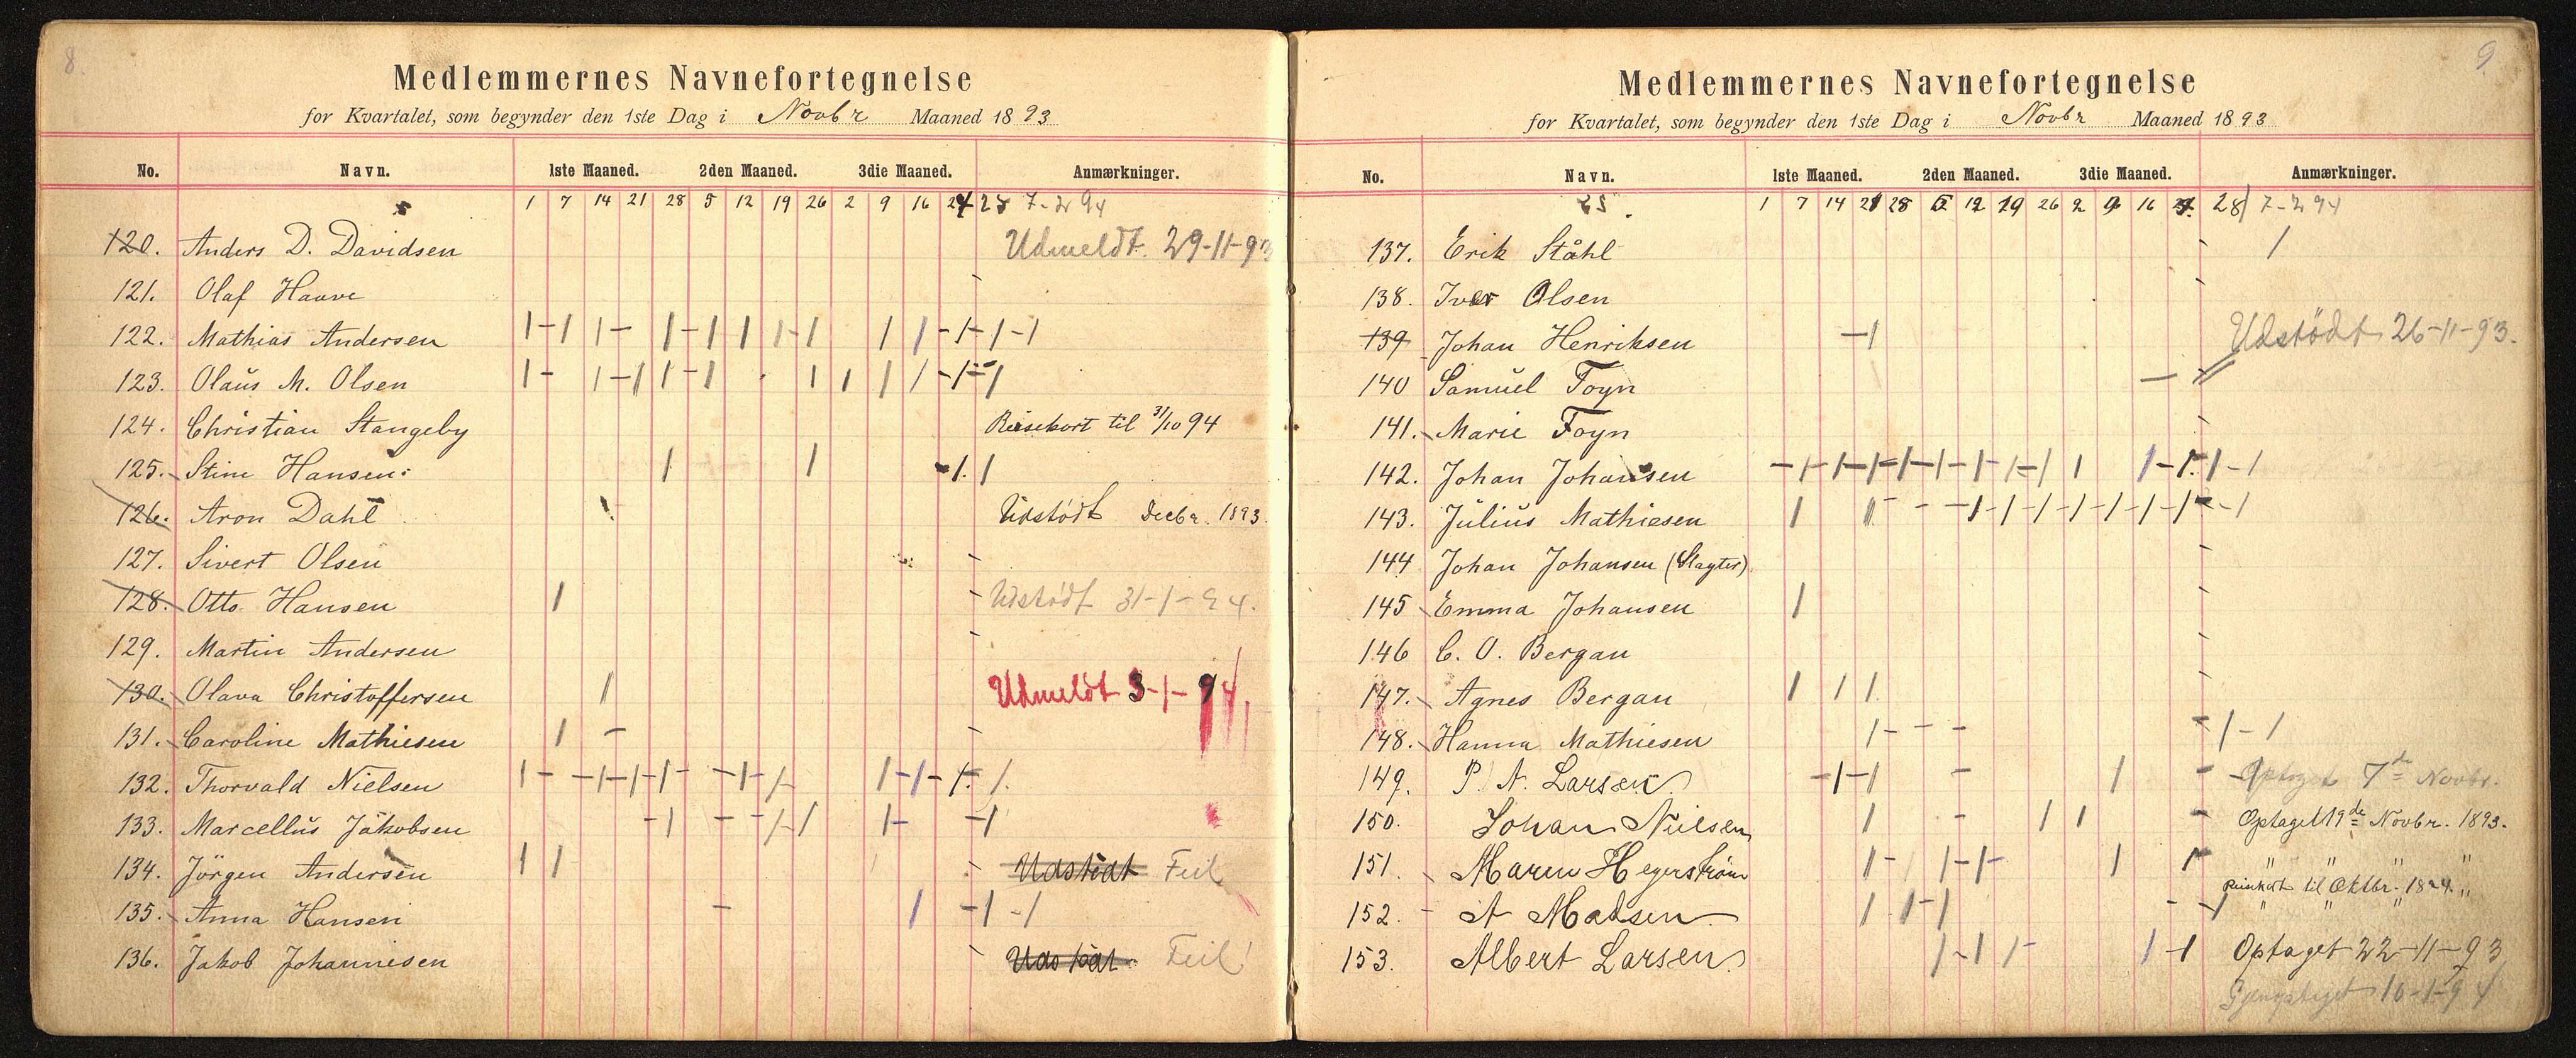 8.
Medlemmernes Navnefortegnelse
for Kvartalet, som begynder den 1ste Dag i Novbr Maaned 1893
No. Navn. 1ste Maaned. 2den Maaned. 3die Maaned. Anmærkninger.
1 7 14 21 28 5 12 19 26 2 9 16 24 28 7-2 94
120. Anders D. Davidsen Udmeldt. 29-11-93
121. Olaf Haave
122. Mathias Andersen
123. Olaus M. Olsen
124. Christian Stangeby Reisekort til 31/10 94
125. Stine Hansen
126. Aron Dahl Udstødt Decbr. 1893.
127. Sivert Olsen
128. Otto Hansen Udstødt 31-1-94.
129. Martin Andersen
130. Olava Christoffersen Udmeldt 3-1-94,
131. Caroline Mathiesen
132. Thorvald Nielsen
133. Marcellus Jakobsen
134. Jörgen Andersen Udstödt Feil
135. Anna Hansen
136. Jakob Johannesen Udstödt Feil!
9.
Medlemmernes Navnefortegnelse
for Kvartalet, som begynder den 1ste Dag i Novbr Maaned 1893
No. Navn. 1ste Maaned. 2den Maaned. 3die Maaned. Anmærkninger.
1 7 14 21 28 5 12 19 26 2 9 16 28 7-2 94
137. Erik Ståhl
138. Iver Olsen
139 Johan Henriksen Udstödt 26-11-93.
140 Samuel Foyn
141. Marie Foyn
142. Johan Johansen
143. Julius Mathiesen
144 Johan Johansen (Slagter)
145 Emma Johansen
146 C. O. Bergan
147. Agnes Bergan
148. Hanna Mathiesen
149. P. A. Larsen Optaget 7de Novbr.
150. Johan Nielsen Optaget 19de Novbr. 1893.
151. Maren Hegerström " " " "
Reisekort til Oktbr. 1894.
152. A Madsen " " " "
153. Albert Larsen Optaget 22-11-93
10-1-94